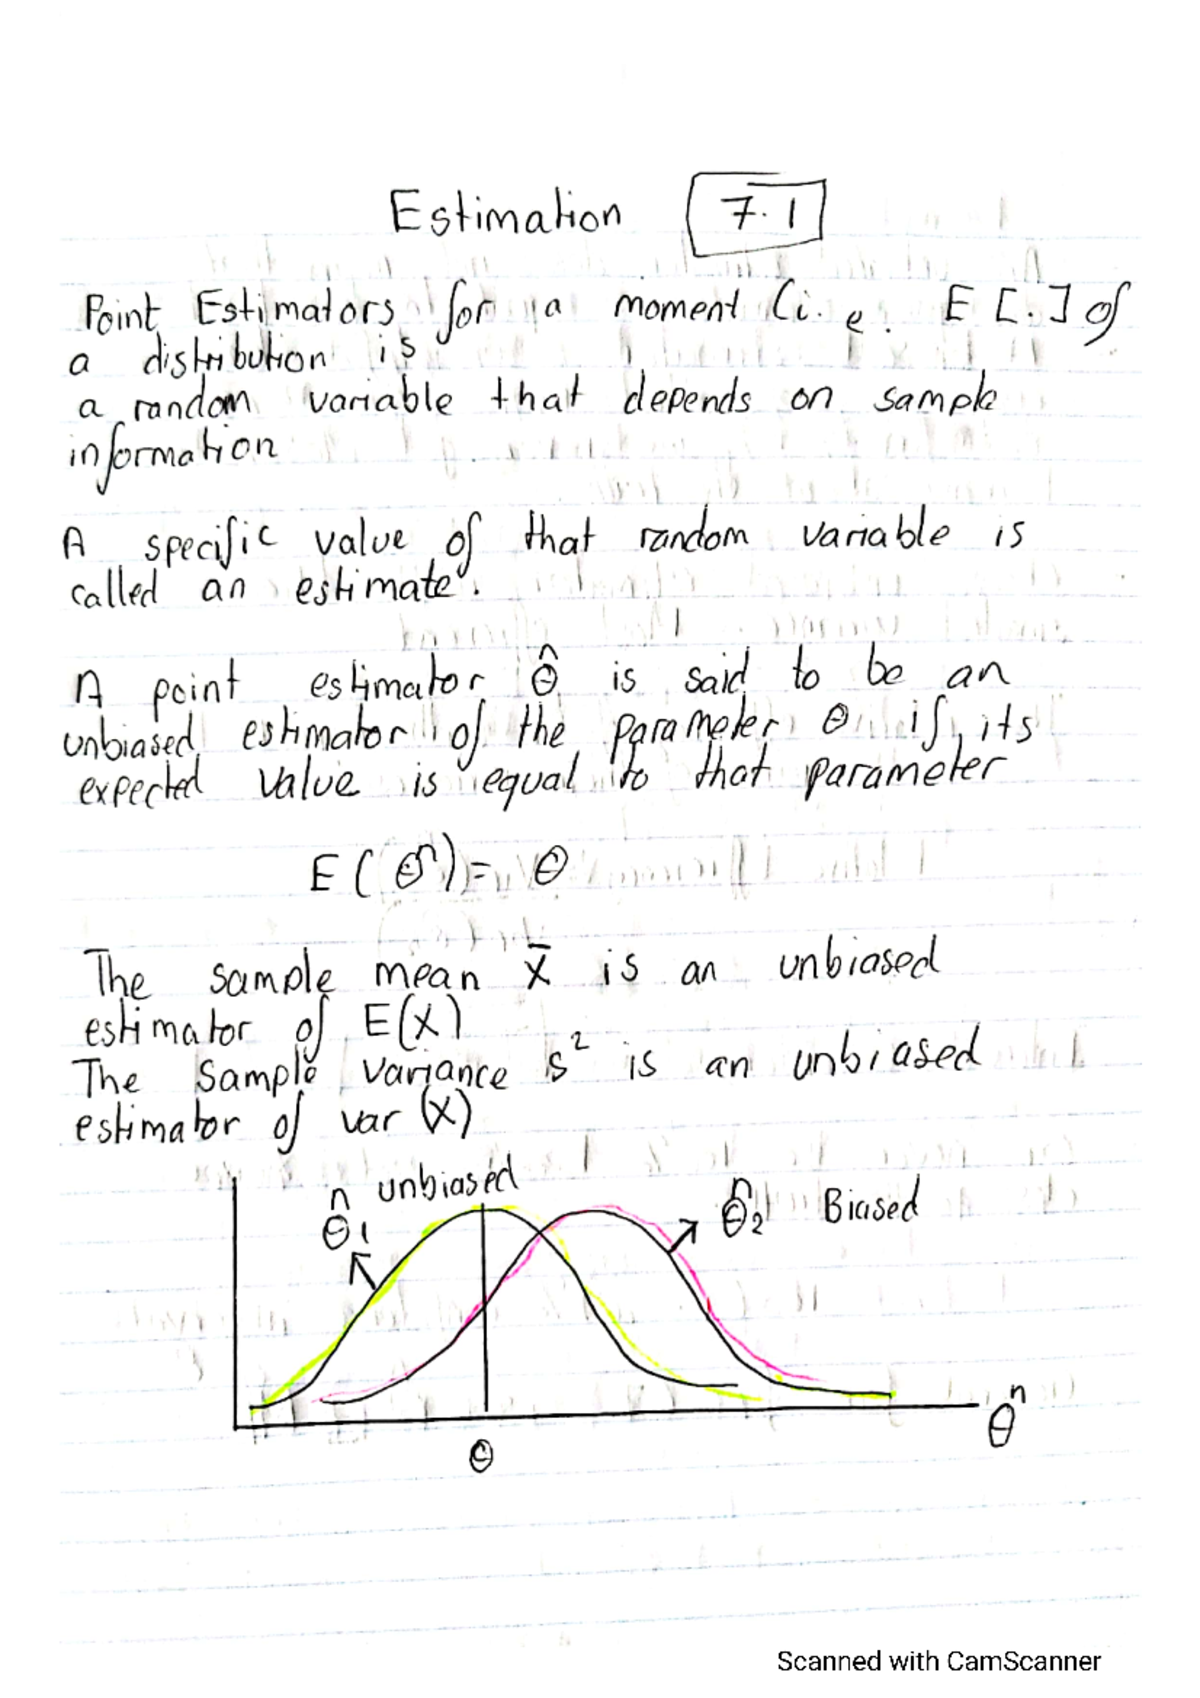 Estimation 7.1
Point Estimators for a moment (i.e. E [.] of
a distribution is
a random variable that depends on sample
information
A specific value of that random variable is
called an estimate.
A point estimator θ̂ is said to be an
unbiased estimator of the parameter θ if its
expected value is equal to that parameter
E(θ̂) = θ
The sample mean x̄ is an unbiased
estimator of E(X)
The Sample variance s² is an unbiased
estimator of var (X)
unbiased
θ̂₁
θ̂₂ Biased
θ̂
θ
Scanned with CamScanner